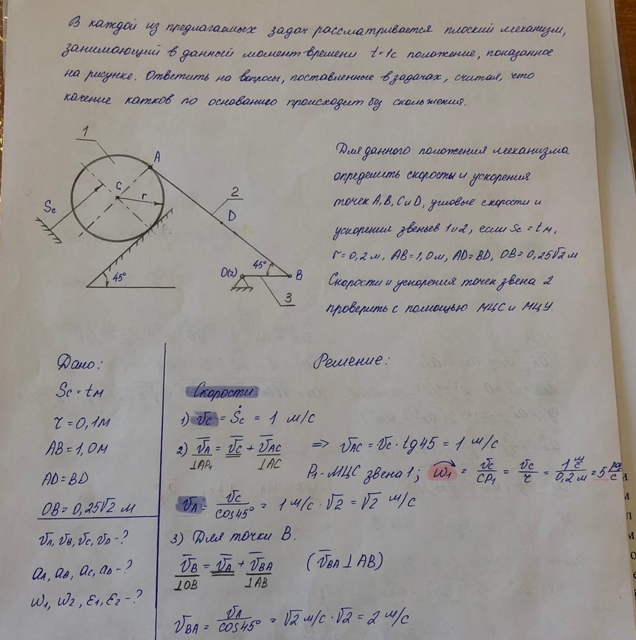 В каждой из предлагаемых задач рассматривается плоский механизм,
занимающий в данный момент времени t=1с положение, показанное
на рисунке. Ответить на вопросы, поставленные в задачах, считая, что
качение катков по основанию происходит без скольжения.
1
A
C
r
Sc
2
D
45°
45°
O(z)
B
3
Для данного положения механизма
определить скорости и ускорения
точек A, B, C и D, угловые скорости и
ускорения звеньев 1 и 2, если Sc = t м,
r = 0,2 м, AB = 1,0 м, AD = BD, OB = 0,25√2 м
Скорости и ускорения точек звена 2
проверить с помощью МЦС и МЦУ.
Дано:
Sc = t м
r = 0,1 м
AB = 1,0 м
AD = BD
OB = 0,25√2 м
vA, vB, vC, vD - ?
aA, aB, aC, aD - ?
ω1, ω2, ε1, ε2 - ?
Решение:
Скорости
1) vc = Ṡc = 1 м/с
2) v̄A = v̄c + v̄AC ⇒ vAC = vc · tg45 = 1 м/с
⊥AP1 ⊥AC
P1 - МЦС звена 1; ω1 = vc/CP1 = vc/r = 1 м/с / 0,2 м = 5 рад/с
vA = vc/cos45° = 1 м/с · √2 = √2 м/с
3) Для точки B.
v̄B = v̄A + v̄BA (v̄BA ⊥ AB)
⊥OB ⊥AB
vBA = vA/cos45° = √2 м/с · √2 = 2 м/с